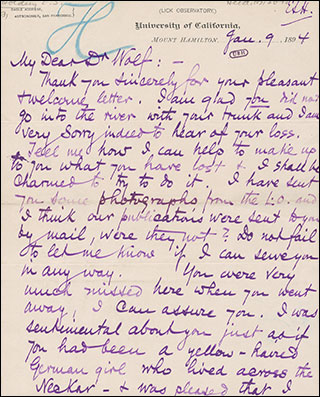 (LICK OBSERVATORY)
University of California,
MOUNT HAMILTON, Jan. 9 1894
My Dear Dr Wolf: —
Thank you sincerely for your pleasant
& welcome letter. I am glad you did not
go into the river with your trunk and I am
very sorry indeed to hear of your loss.
Tell me how I can help to make up
to you what you have lost & I shall be
charmed to try to do it. I have sent
you some photographs from the L.O. and
I think our publications were sent to you
by mail, were they not? Do not fail
to let me know if I can serve you
in any way. You were very
much missed here when you went
away, I can assure you. I was
sentimental about you just as if
you had been a yellow-haired
German girl who lived across the
Neckar — & was pleased that I